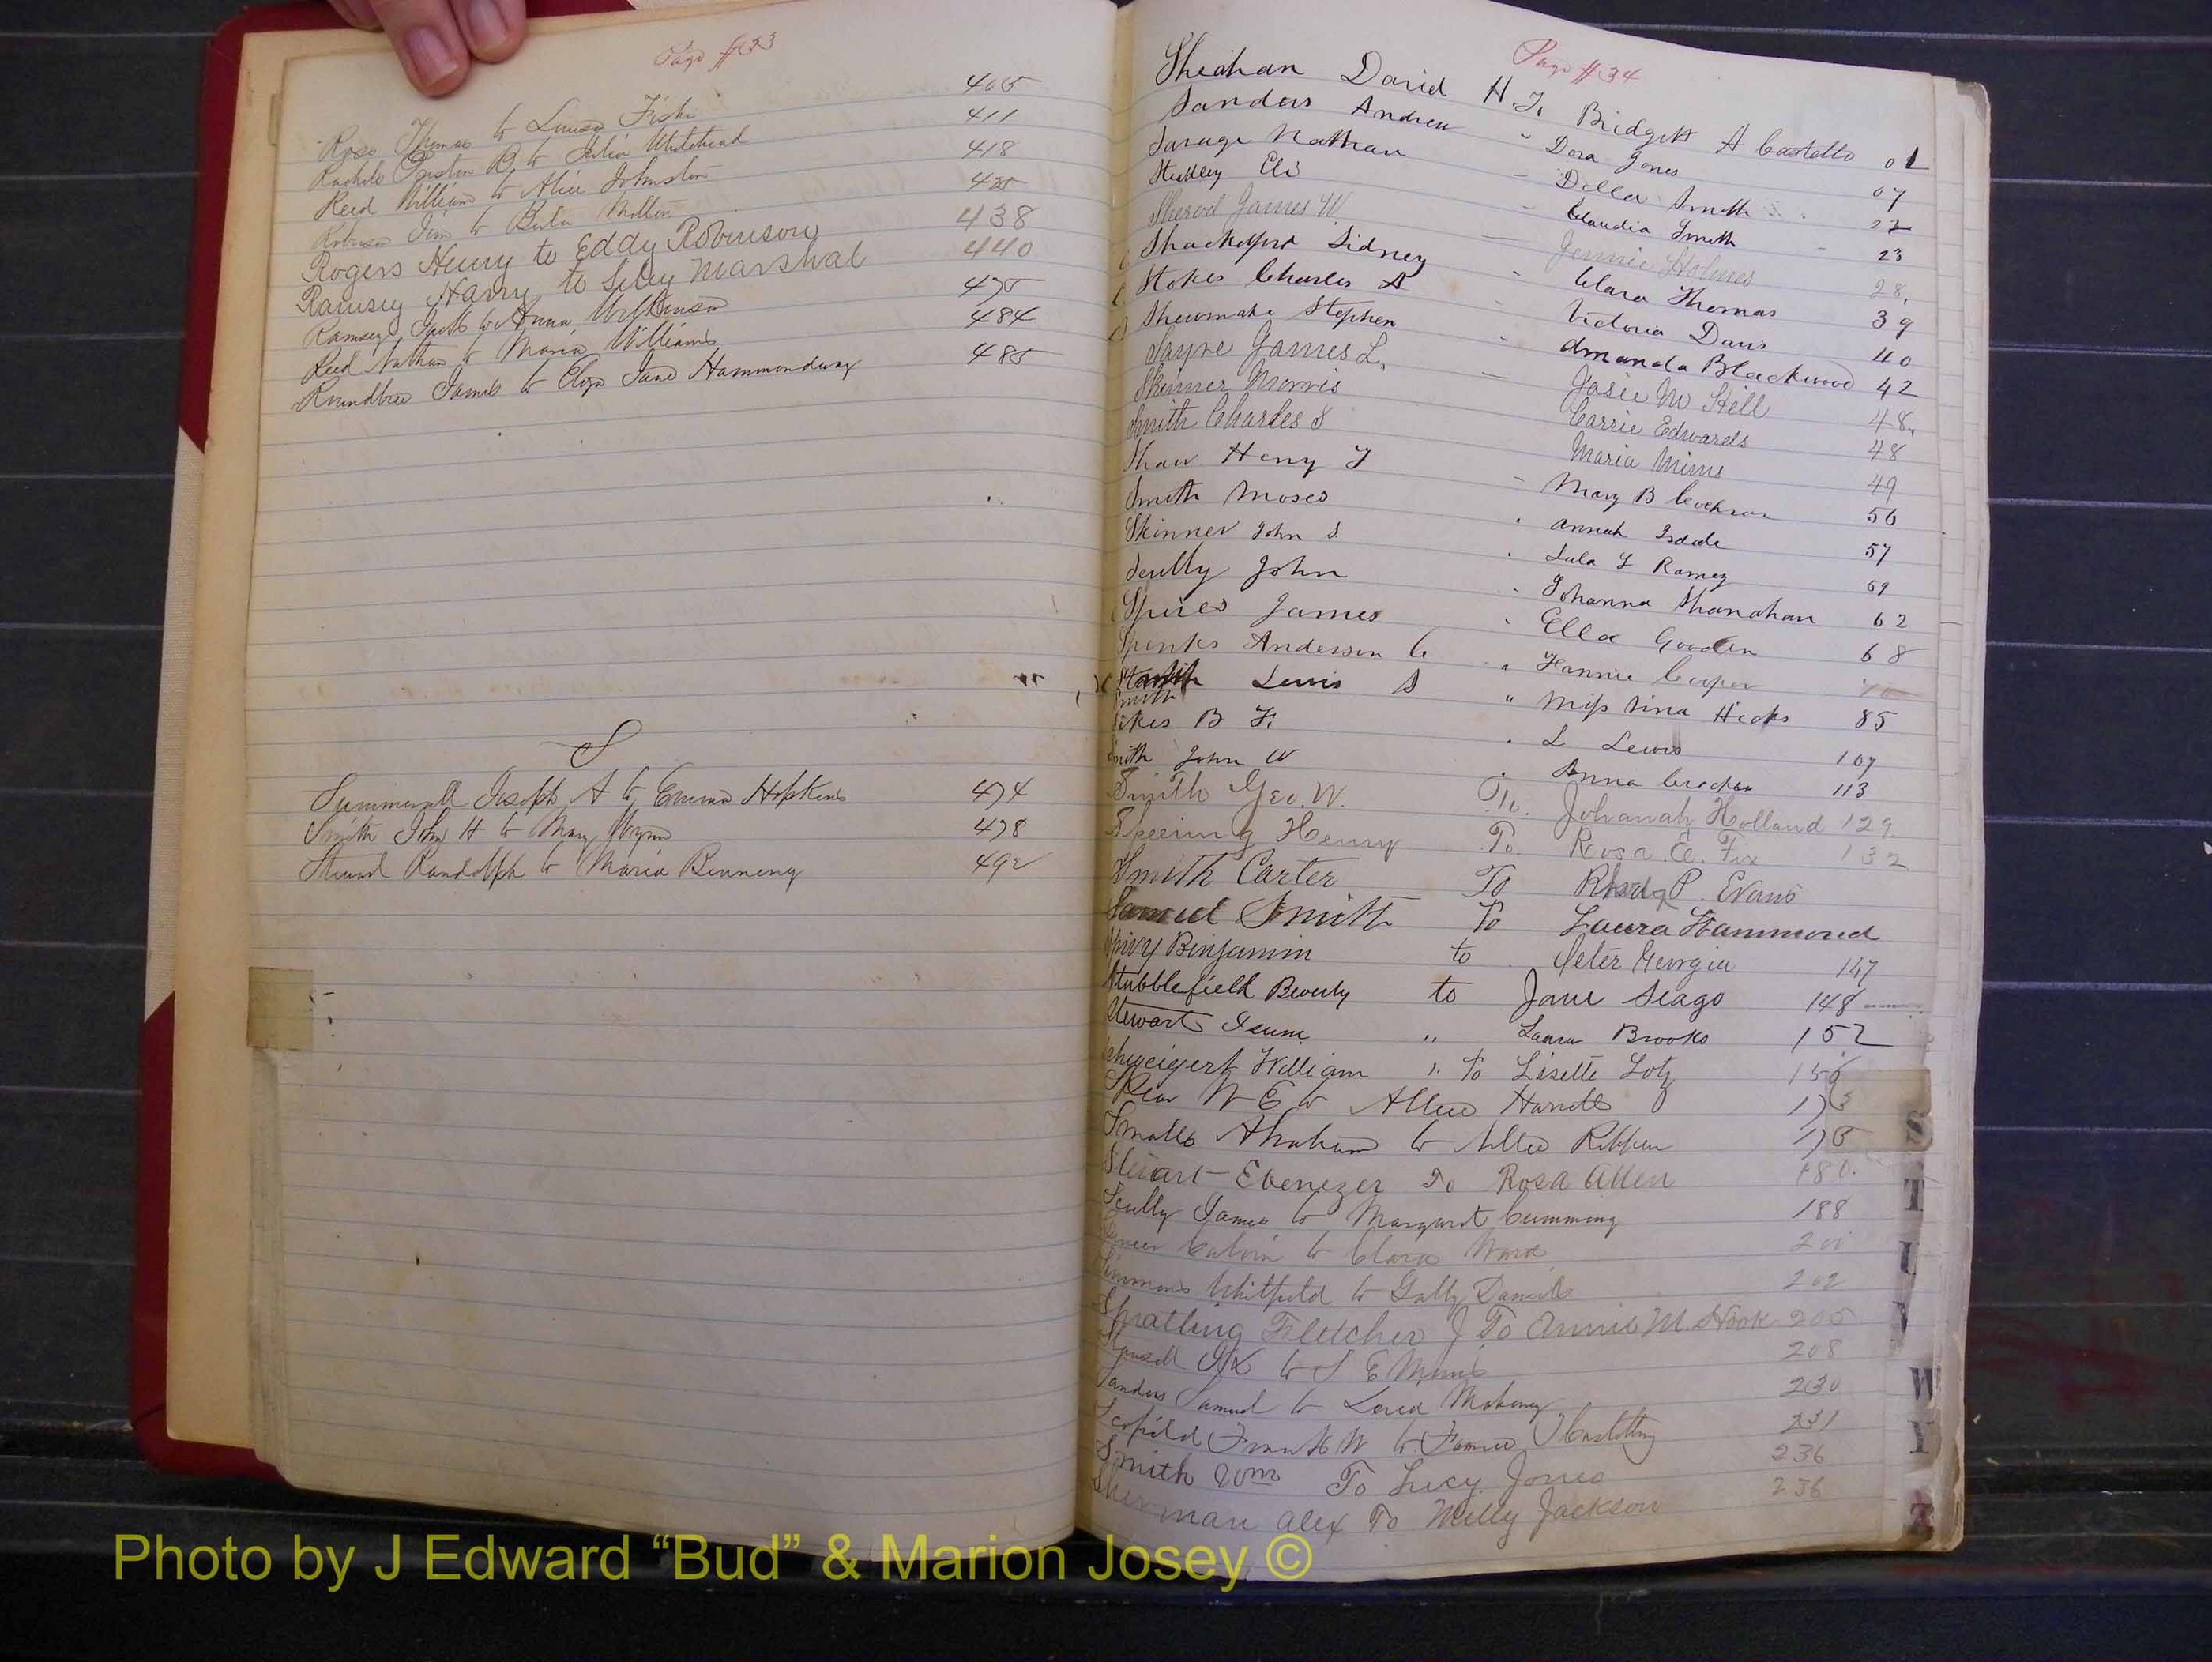 Page #33
Rose Thomas to Louisa Fishe 405
Rachels Preston B to Julia Whitehead 411
Reed William to Alice Johnston 418
Robinson Jim to Beula Mellon 425
Rogers Henry to Eddy Robinson 438
Ramsey Harry to Siley Marshal 440
Ramsey Jack to Anna Wilkinson 475
Reed Nathan to Maria Williams 484
Roundtree James to Eliza Jane Hammondway 485
S
Summerall Joseph A to Emma Hopkins 474
Smith John H to Mary Wynn 478
Randolph to Maria Benning 492
Page #34
Sheahan David H. To Bridgett A Costello 01
Sanders Andrew " Dora Jones 07
Savage Nathan - Della Smith 22
Eli - Claudia Smith 23
Sherod James W. - Jennie Holmes 28.
Shackelford Sidney - Clara Thomas 39
Stokes Charles A - Victoria Davis 40
Shewmake Stephen - Amanda Blackwood 42
Sayre James L. - Josie M Hill 48.
Skinner Morris Carrie Edwards 48
Smith Charles S Maria Mims 49
Shaw Henry J - Mary B Cochran 56
Smith Moses " Annah 57
Skinner John S. " Lula L Ramey 59
Scully John " Johanna Shanahan 62
Spires James " Ella Gooden 68
Spinks Anderson C " Fannie Cooper
Smith Lewis S " Miss Nina Hicks 85
Sikes B F. " L Lewis 107
Smith John W " Anna 113
Smith Geo. W. To. Johanah Holland 129
Speering Henry To Rosa E. Fix 132
Smith Carter To Rhoda P. Evans
Samuel Smith To Laura Hammond
Spivy Binjamin to Peter Georgia 147
Stubblefield Beverly to Jane Seago 148
Stewart " Laura Brooks 152
Schweigert William " To Lisette Lotz 156
W E to Allie Harrell 173
Smalls Abraham to 175
Steuart Ebenezer To Rosa Allen 180.
Scully James to Margaret Cumming 188
Calvin to Clara Ward 200
Simmons Whitfield to Daniels 202
Spratling Fletcher J To Annie M. Hook 205
to S E Mims 208
Sanders Samuel to Mahoney 230
Scofield Frank W to Fannie 231
Smith Wm To Lucy Jones 236
Sherman Alex To Milly Jackson 256
S
T
U
V
W
Y
Z
Photo by J Edward “Bud” & Marion Josey ©